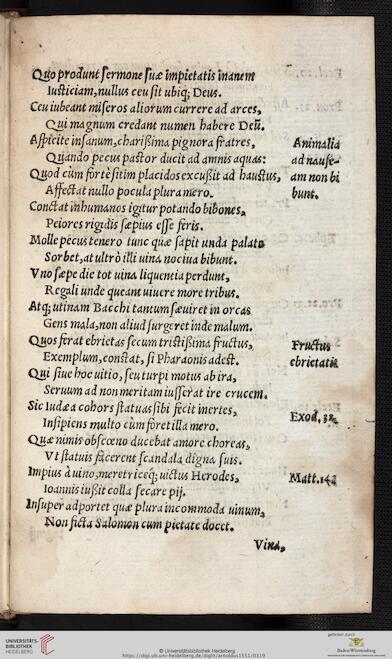 Quo produnt sermone suæ impietatis inanem
Iusticiam, nullus ceu sit ubiq; Deus.
Ceu iubeant miseros aliorum currere ad arces,
Qui magnum credant numen habere Deũ.
Aspicite insanum, charißima pignora fratres,
Quando pecus pastor ducit ad amnis aquas:
Quod cùm fortè sitim placidos excußit ad haustus,
Affectat nullo pocula plura mero.
Constat inhumanos igitur potando bibones,
Peiores rigidis sæpius esse feris.
Molle pecus tenero tunc quæ sapit unda palato
Sorbet, at ultrò illi uina nociua bibunt.
Vno sæpe die tot uina liquentia perdunt,
Regali unde queant uiuere more tribus.
Atq; utinam Bacchi tantum sæuiret in orcas
Gens mala, non aliud surgeret inde malum.
Quos ferat ebrietas secum tristißima fructus,
Exemplum, constat, si Pharaonis adest.
Qui siue hoc uitio, seu turpi motus ab ira,
Seruum ad non meritam iusserat ire crucem.
Sic Iudæa cohors statuas sibi fecit inertes,
Insipiens multo cùm foret illa mero.
Quæ nimis obscœno ducebat amore choreas,
Vt statuis facerent scandala digna suis.
Impius à uino, meretriceq; uictus Herodes,
Ioannis iußit colla secare pij.
Insuper adportet quæ plura incommoda uinum,
Non ficta Salomon cum pietate docet.
Vina,
Animalia
ad nause-
am non bi
bunt.
Fructus
ebrietatis
Exod. 32.
Matt. 14
UNIVERSITÄTS-
BIBLIOTHEK
HEIDELBERG
© Universitätsbibliothek Heidelberg
https://digi.ub.uni-heidelberg.de/diglit/arnoldus1551/0319
gefördert durch
Baden-Württemberg